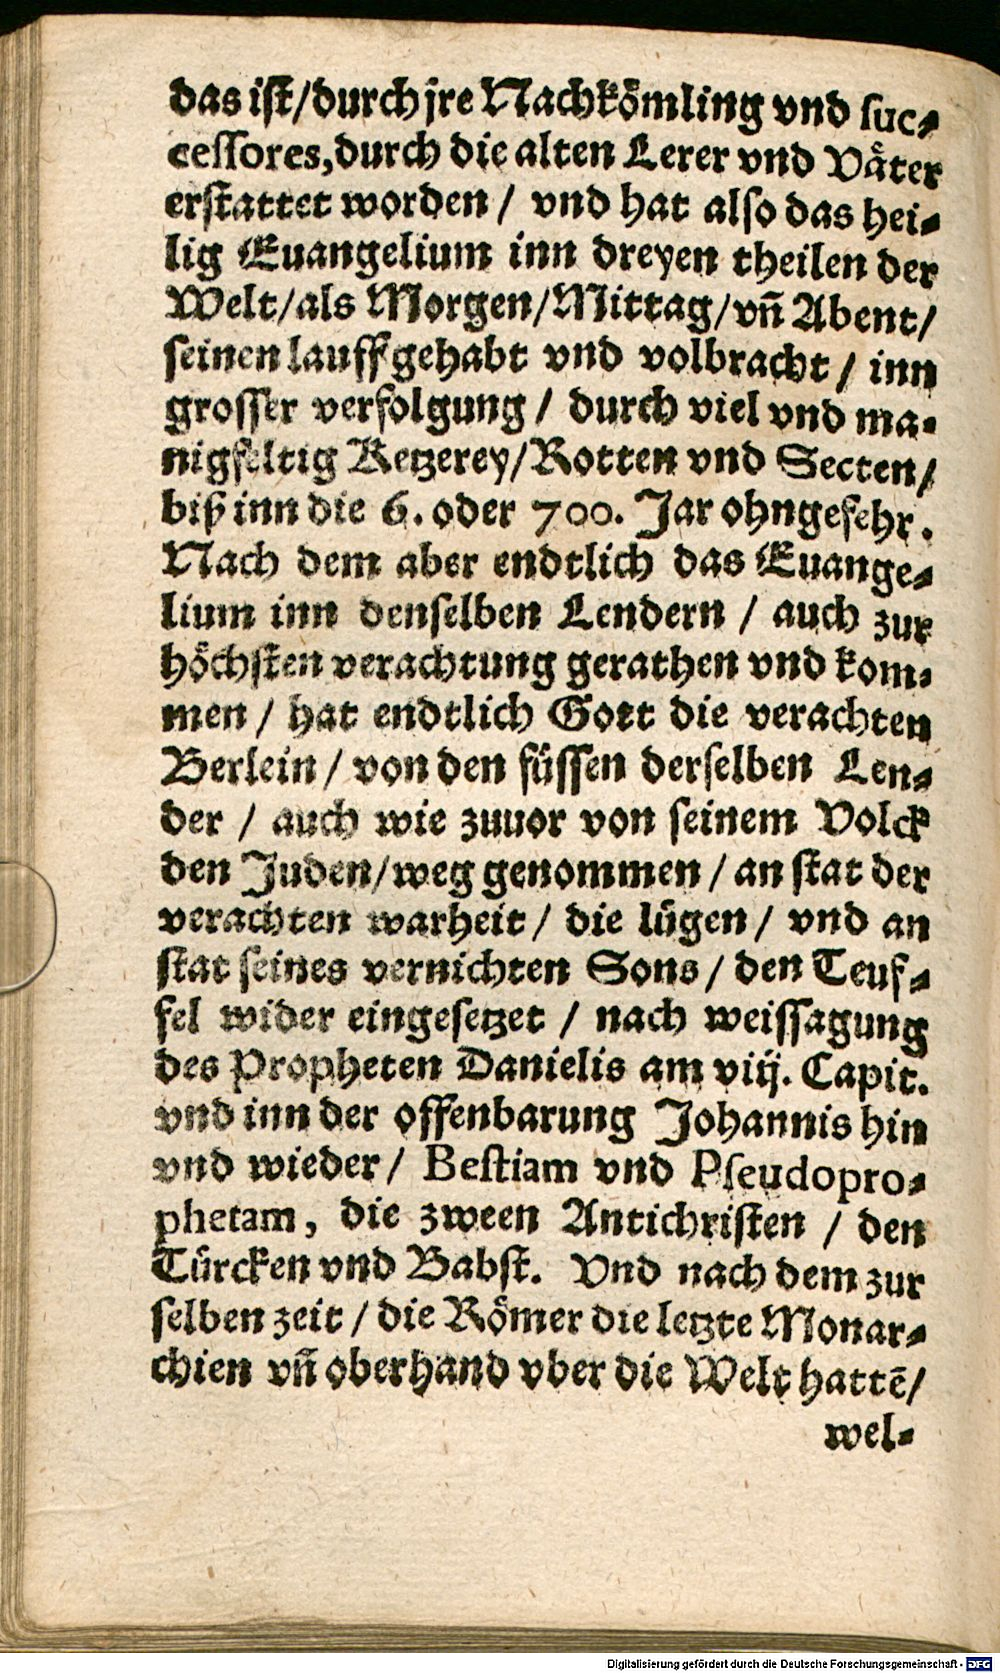 das ist/durch jre Nachkömling vnd suc-
cessores, durch die alten Lerer vnd Väter
erstattet worden / vnd hat also das hei-
lig Euangelium inn dreyen theilen der
Welt/als Morgen/Mittag/vñ Abent/
seinen lauff gehabt vnd volbracht / inn
grosser verfolgung / durch viel vnd ma-
nigfeltig Ketzerey/Rotten vnd Secten/
biß inn die 6. oder 700. Jar ohngefehr.
Nach dem aber endtlich das Euange-
lium inn denselben Lendern / auch zur
höchsten verachtung gerathen vnd kom-
men / hat endtlich Gott die verachten
Berlein / von den füssen derselben Len-
der / auch wie zuuor von seinem Volck
den Juden/weg genommen / an stat der
verachten warheit / die lügen / vnd an
stat seines vernichten Sons / den Teuf-
fel wider eingesetzet / nach weissagung
des Propheten Danielis am viij. Capit.
vnd inn der offenbarung Johannis hin
vnd wieder/ Bestiam vnd Pseudopro-
phetam, die zween Antichristen / den
Türcken vnd Babst. Vnd nach dem zur
selben zeit / die Römer die letzte Monar-
chien vñ oberhand vber die Welt hattẽ/
wel-
Digitalisierung gefördert durch die Deutsche Forschungsgemeinschaft - DFG